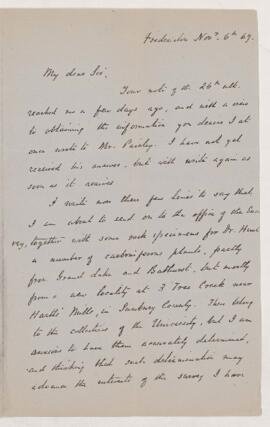 Fredericton Nov. 6th 69.
My dear Sir,
Your note of the 26th ult.
reached me a few days ago, and with a view
to obtaining the information you desire I at
once wrote to Mr. Paisley. I have not yet
received his answer, but will write again as
soon as it arrives.
I write now these few lines to say that
I am about to send on to the office of the Sur-
vey, together with some rock specimens for Dr. Hunt
a number of carboniferous plants, partly
from Grand Lake and Bathurst, but mostly
from a new locality at 3 Tree Creek near
Hartt's Mills, in Sunbury County. They belong
to the collections of the University, but I am
anxious to have them accurately determined,
and thinking that such determination may
advance the interests of the survey I have